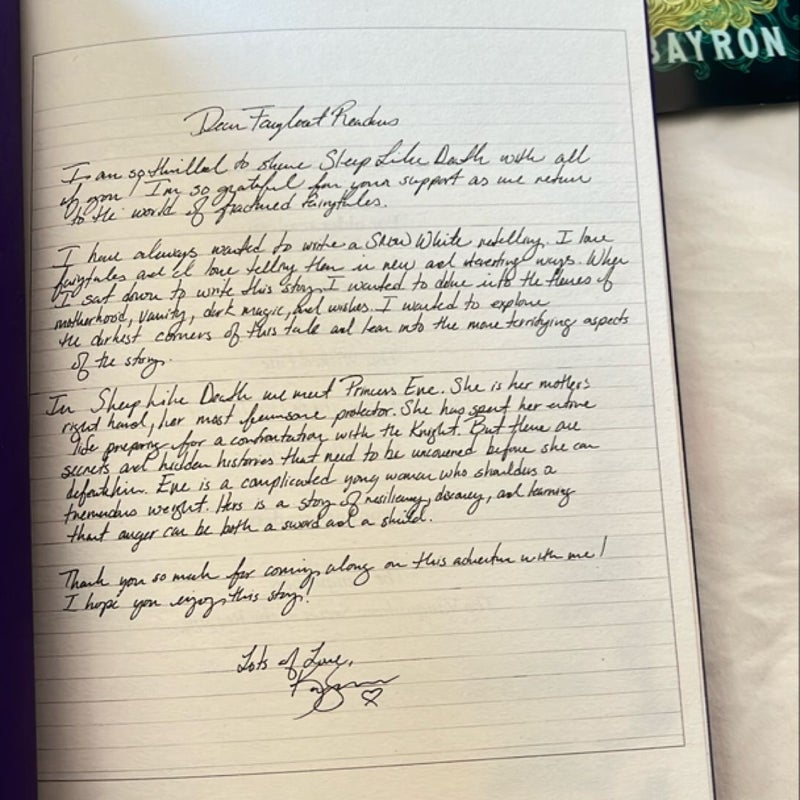 BAYRON
Dear Fairyloot Readers
I am so thrilled to share Sleep Like Death with all
of you! I'm so grateful for your support as we return
to the world of fractured fairytales.
I have always wanted to write a Snow White retelling. I love
fairytales and I love telling them in new and interesting ways. When
I sat down to write this story I wanted to delve into the themes of
motherhood, vanity, dark magic, and wishes. I wanted to explore
the darkest corners of this tale and lean into the more terrifying aspects
of the story.
In Sleep Like Death we meet Princess Eve. She is her mothers
right hand, her most fearsome protector. She has spent her entire
life preparing for a confrontation with the Knight. But there are
secrets and hidden histories that need to be uncovered before she can
defeat him. Eve is a complicated young woman who shoulders a
tremendous weight. Hers is a story of resiliency, discovery, and learning
that anger can be both a sword and a shield.
Thank you so much for coming along on this adventure with me!
I hope you enjoy this story!
Lots of Love,